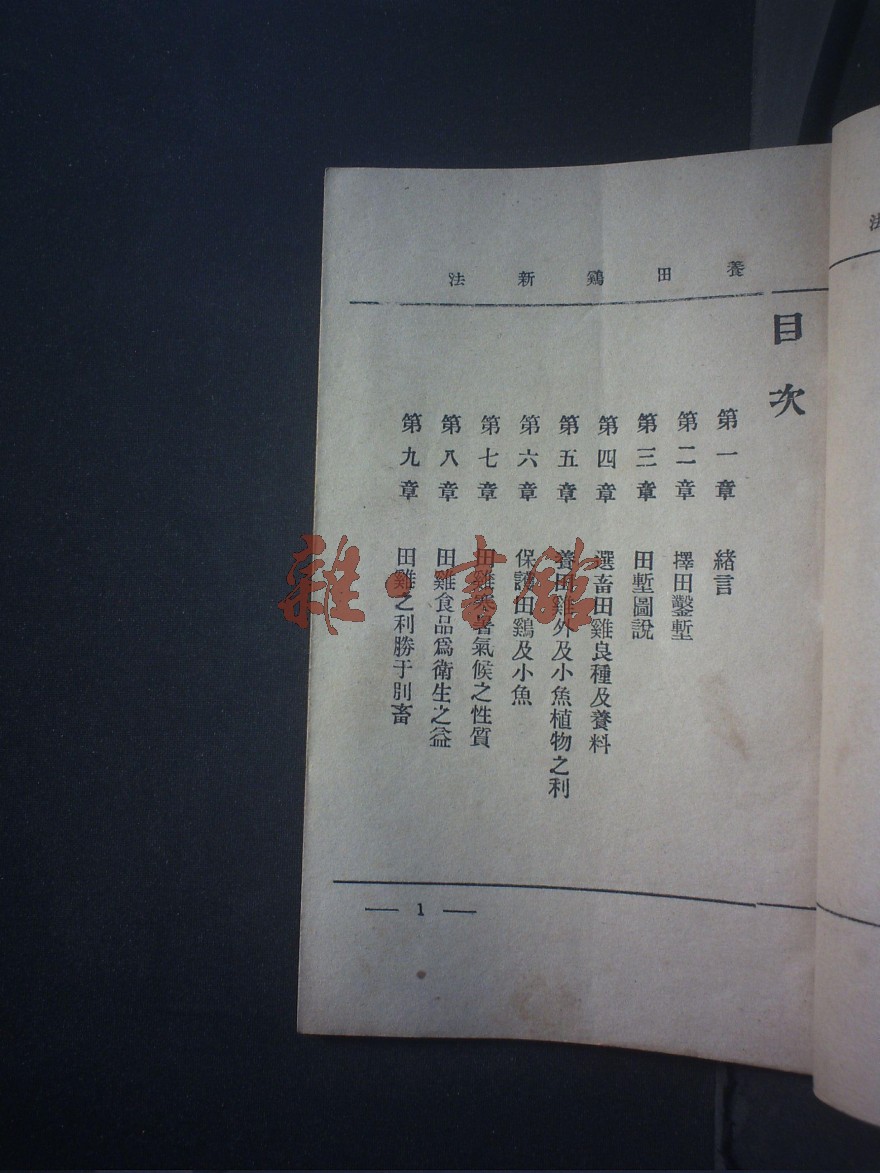 養田鷄新法
目次
第一章 緒言
第二章 擇田鑿塹
第三章 田塹圖說
第四章 選畜田雞良種及養料
第五章 養田雞外及小魚植物之利
第六章 保護田鷄及小魚
第七章 田雞寒暑氣候之性質
第八章 田雞食品爲衛生之益
第九章 田雞之利勝于別畜
— 1 —
法
雜·書館